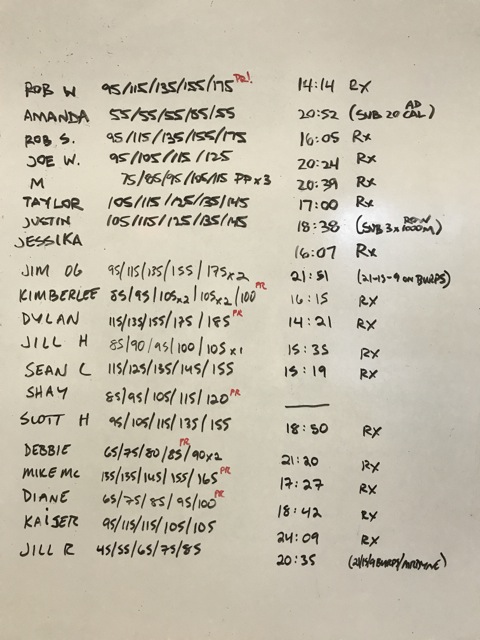 ROB W 95/115/135/155/175 PR! 14:14 RX
AMANDA 55/55/55/55/55 20:52 (SUB 20 AD CAL)
ROB S. 95/115/135/155/175 16:05 Rx
JOE W. 95/105/115/125 20:24 Rx
M 75/85/95/105/115 PP x 3 20:39 Rx
TAYLOR 105/115/125/135/145 17:00 Rx
JUSTIN 105/115/125/135/145 18:38 (SUB 3 x 1000M)
JESSIKA 16:07 Rx
JIM OG 95/115/135/155/175x2 21:51 (21-15-9 ON BURPS)
KIMBERLEE 85/95/105x2/105x2/100 PR 16:15 RX
DYLAN 115/135/155/175/185 PR 14:21 RX
JILL H 85/90/95/100/105 x 1 15:35 RX
SEAN C 115/125/135/145/155 15:19 RX
SHAY 85/95/105/115/120 PR —
SCOTT H 95/105/115/135/155 18:50 RX
DEBBIE 65/75/80/85/90x2 PR 21:20 RX
MIKE MC 135/135/145/155/165 PR 17:27 RX
DIANE 65/75/85/95/100 PR 18:42 RX
KAISER 95/115/115/105/105 24:09 RX
JILL R 45/55/65/75/85 20:35 (21/15/9 BURPS/)